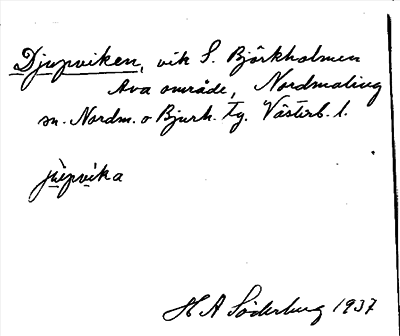 Djupviken, vik S. Björkholmen
Ava område, Nordmaling
sn. Nordm. o Bjurh. tg. Västerb. l.
jùpvika
H A Söderberg 1937